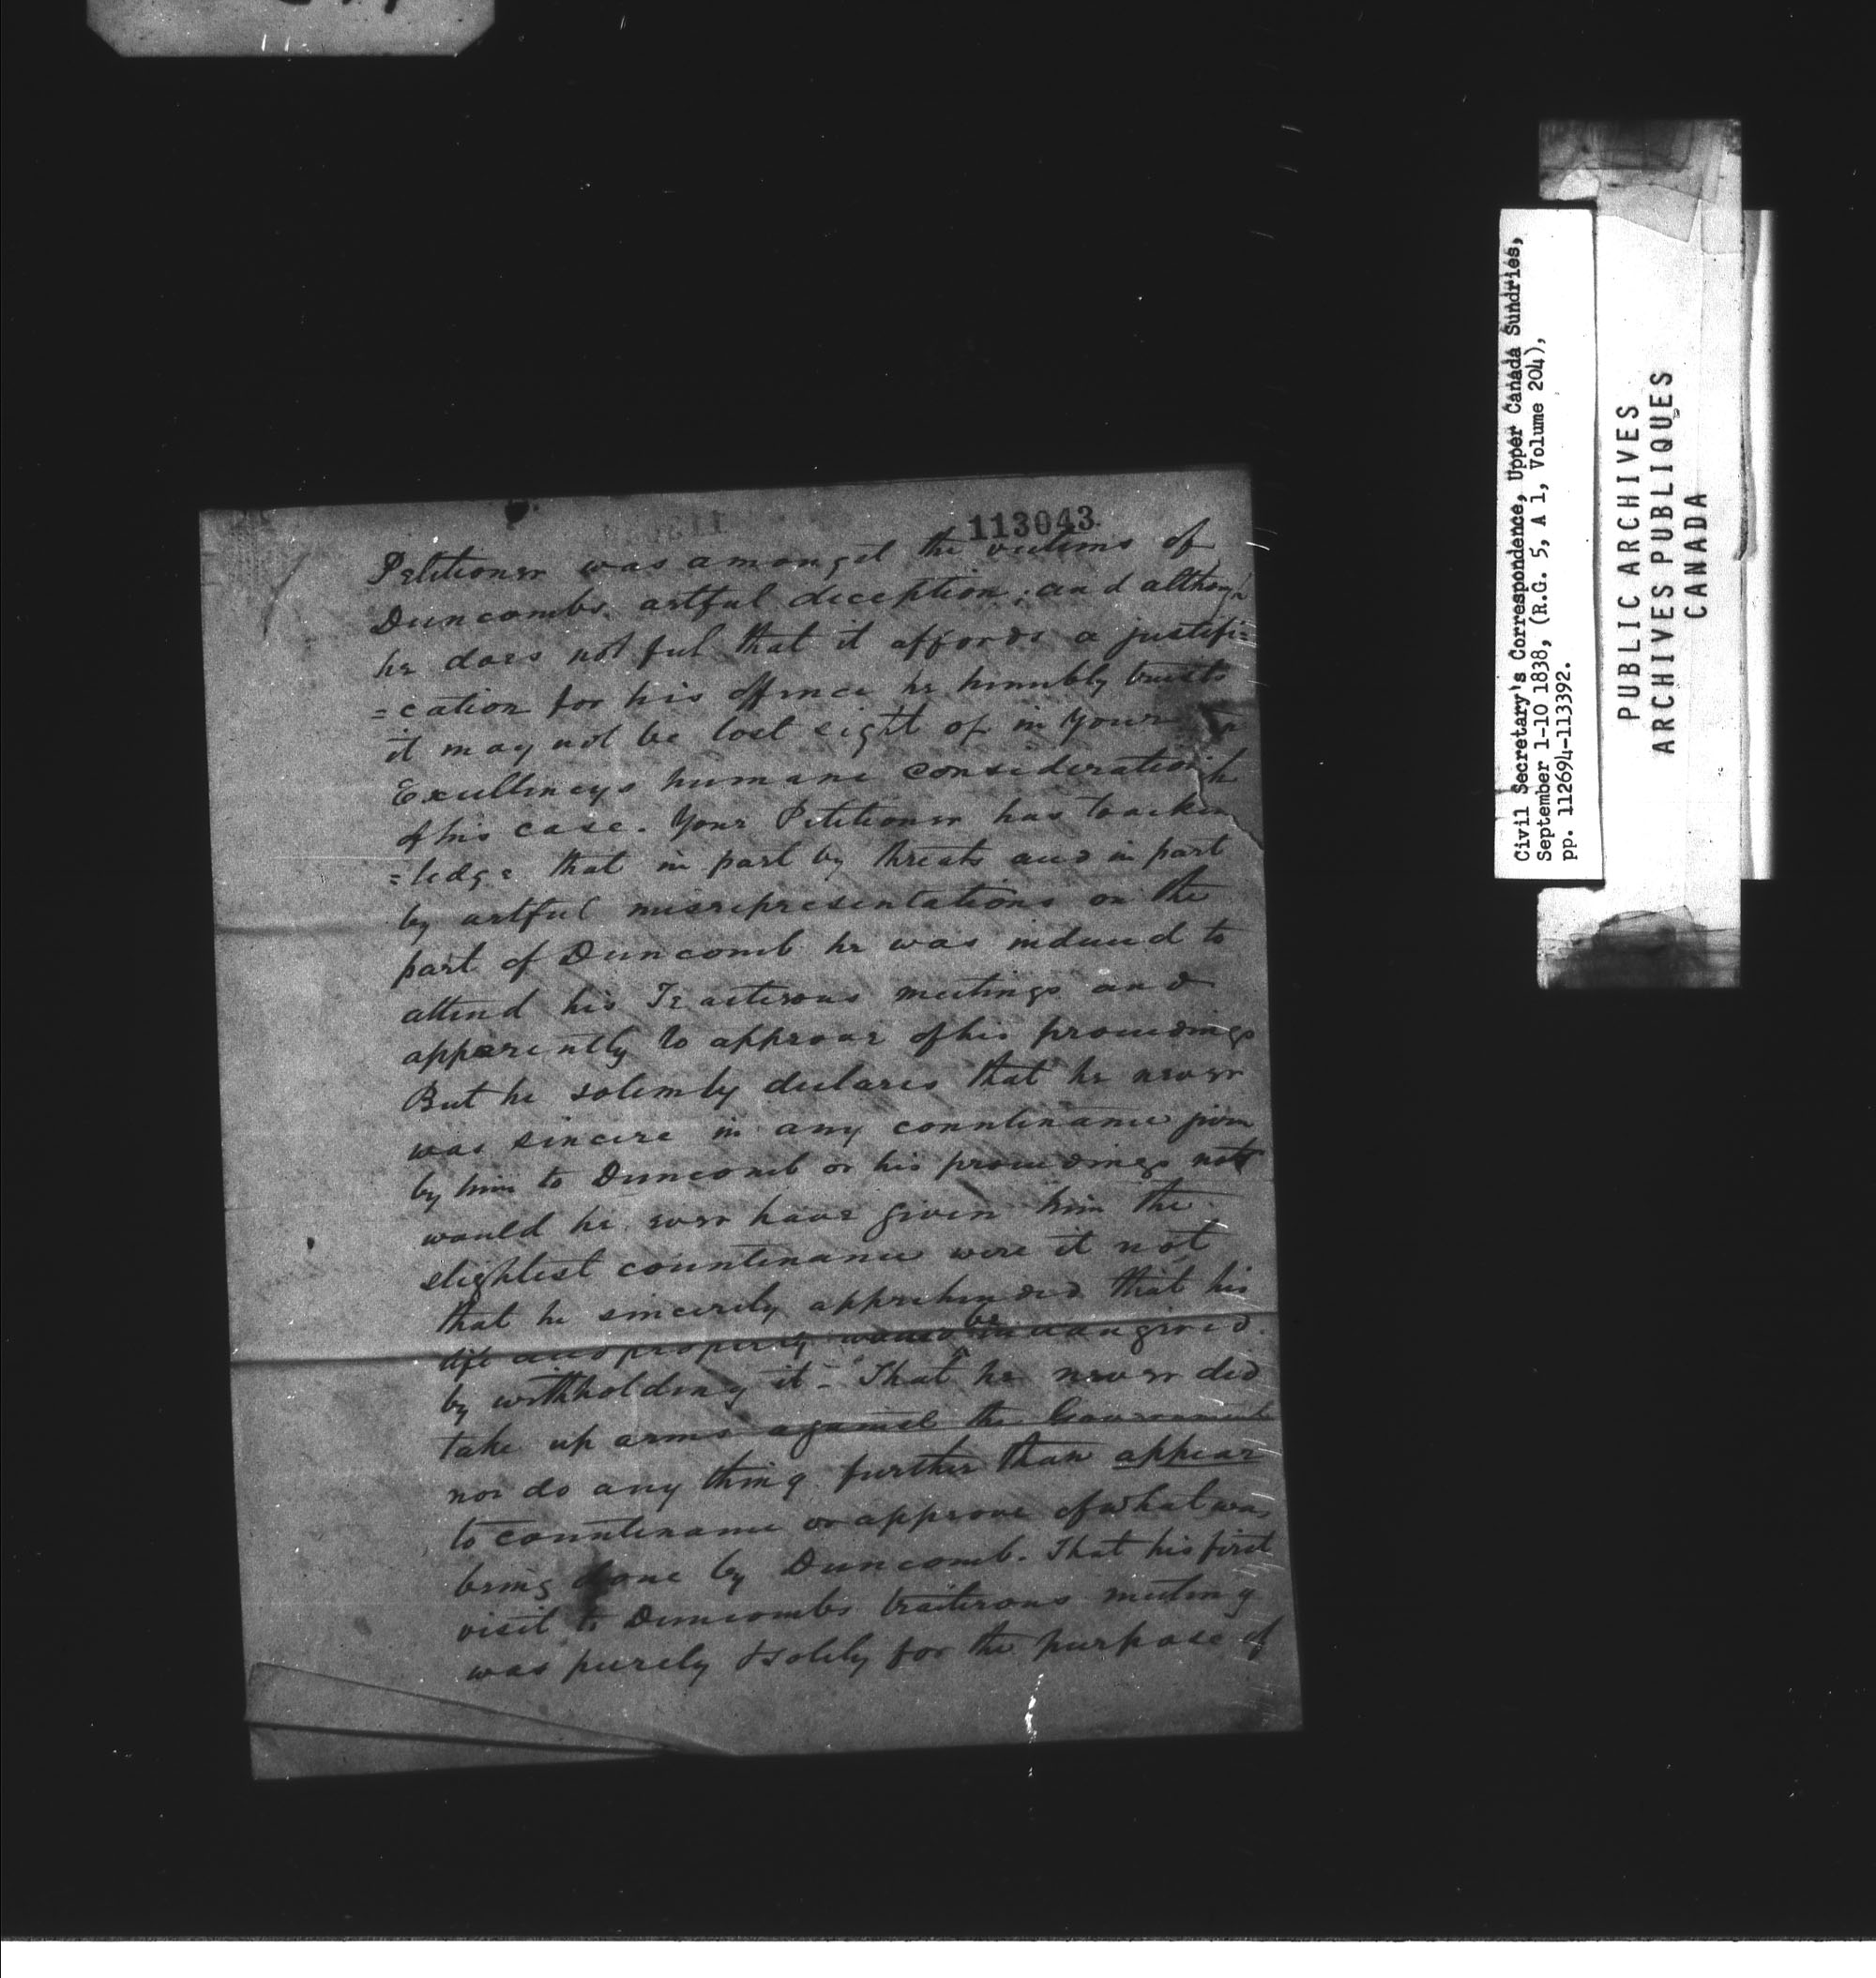 113043
Petitioner was amongst the victims of
Duncombs artful deception; and although
he does not feel that it affords a justifi=
=cation for his offence he humbly trusts
it may not be lost sight of in Your
Excellencys humane consideration
of his case. Your Petitioner has to acknow
=ledge that in part by threats and in part
by artful misrepresentations on the
part of Duncomb he was induced to
attend his Traiterous meetings and
apparently to approve of his proceedings
But he solemly declares that he never
was sincere in any countenance given
by him to Duncomb or his proceedings not
would he ever have given him the
slightest countenance were it not
that he sincerely apprehended that his
life and property would be endangered
by withholding it - That he never did
take up arms against the Government
nor do any thing further than appear
to countenance or approve of what was
being done by Duncomb. That his first
visit to Duncombs traiterous meeting
was purely & solely for the purpose of
Civil Secretary's Correspondence, Upper Canada Sundries,
September 1-10 1838, (R.G. 5, A 1, Volume 204),
pp. 112694-113392.
PUBLIC ARCHIVES
ARCHIVES PUBLIQUES
CANADA